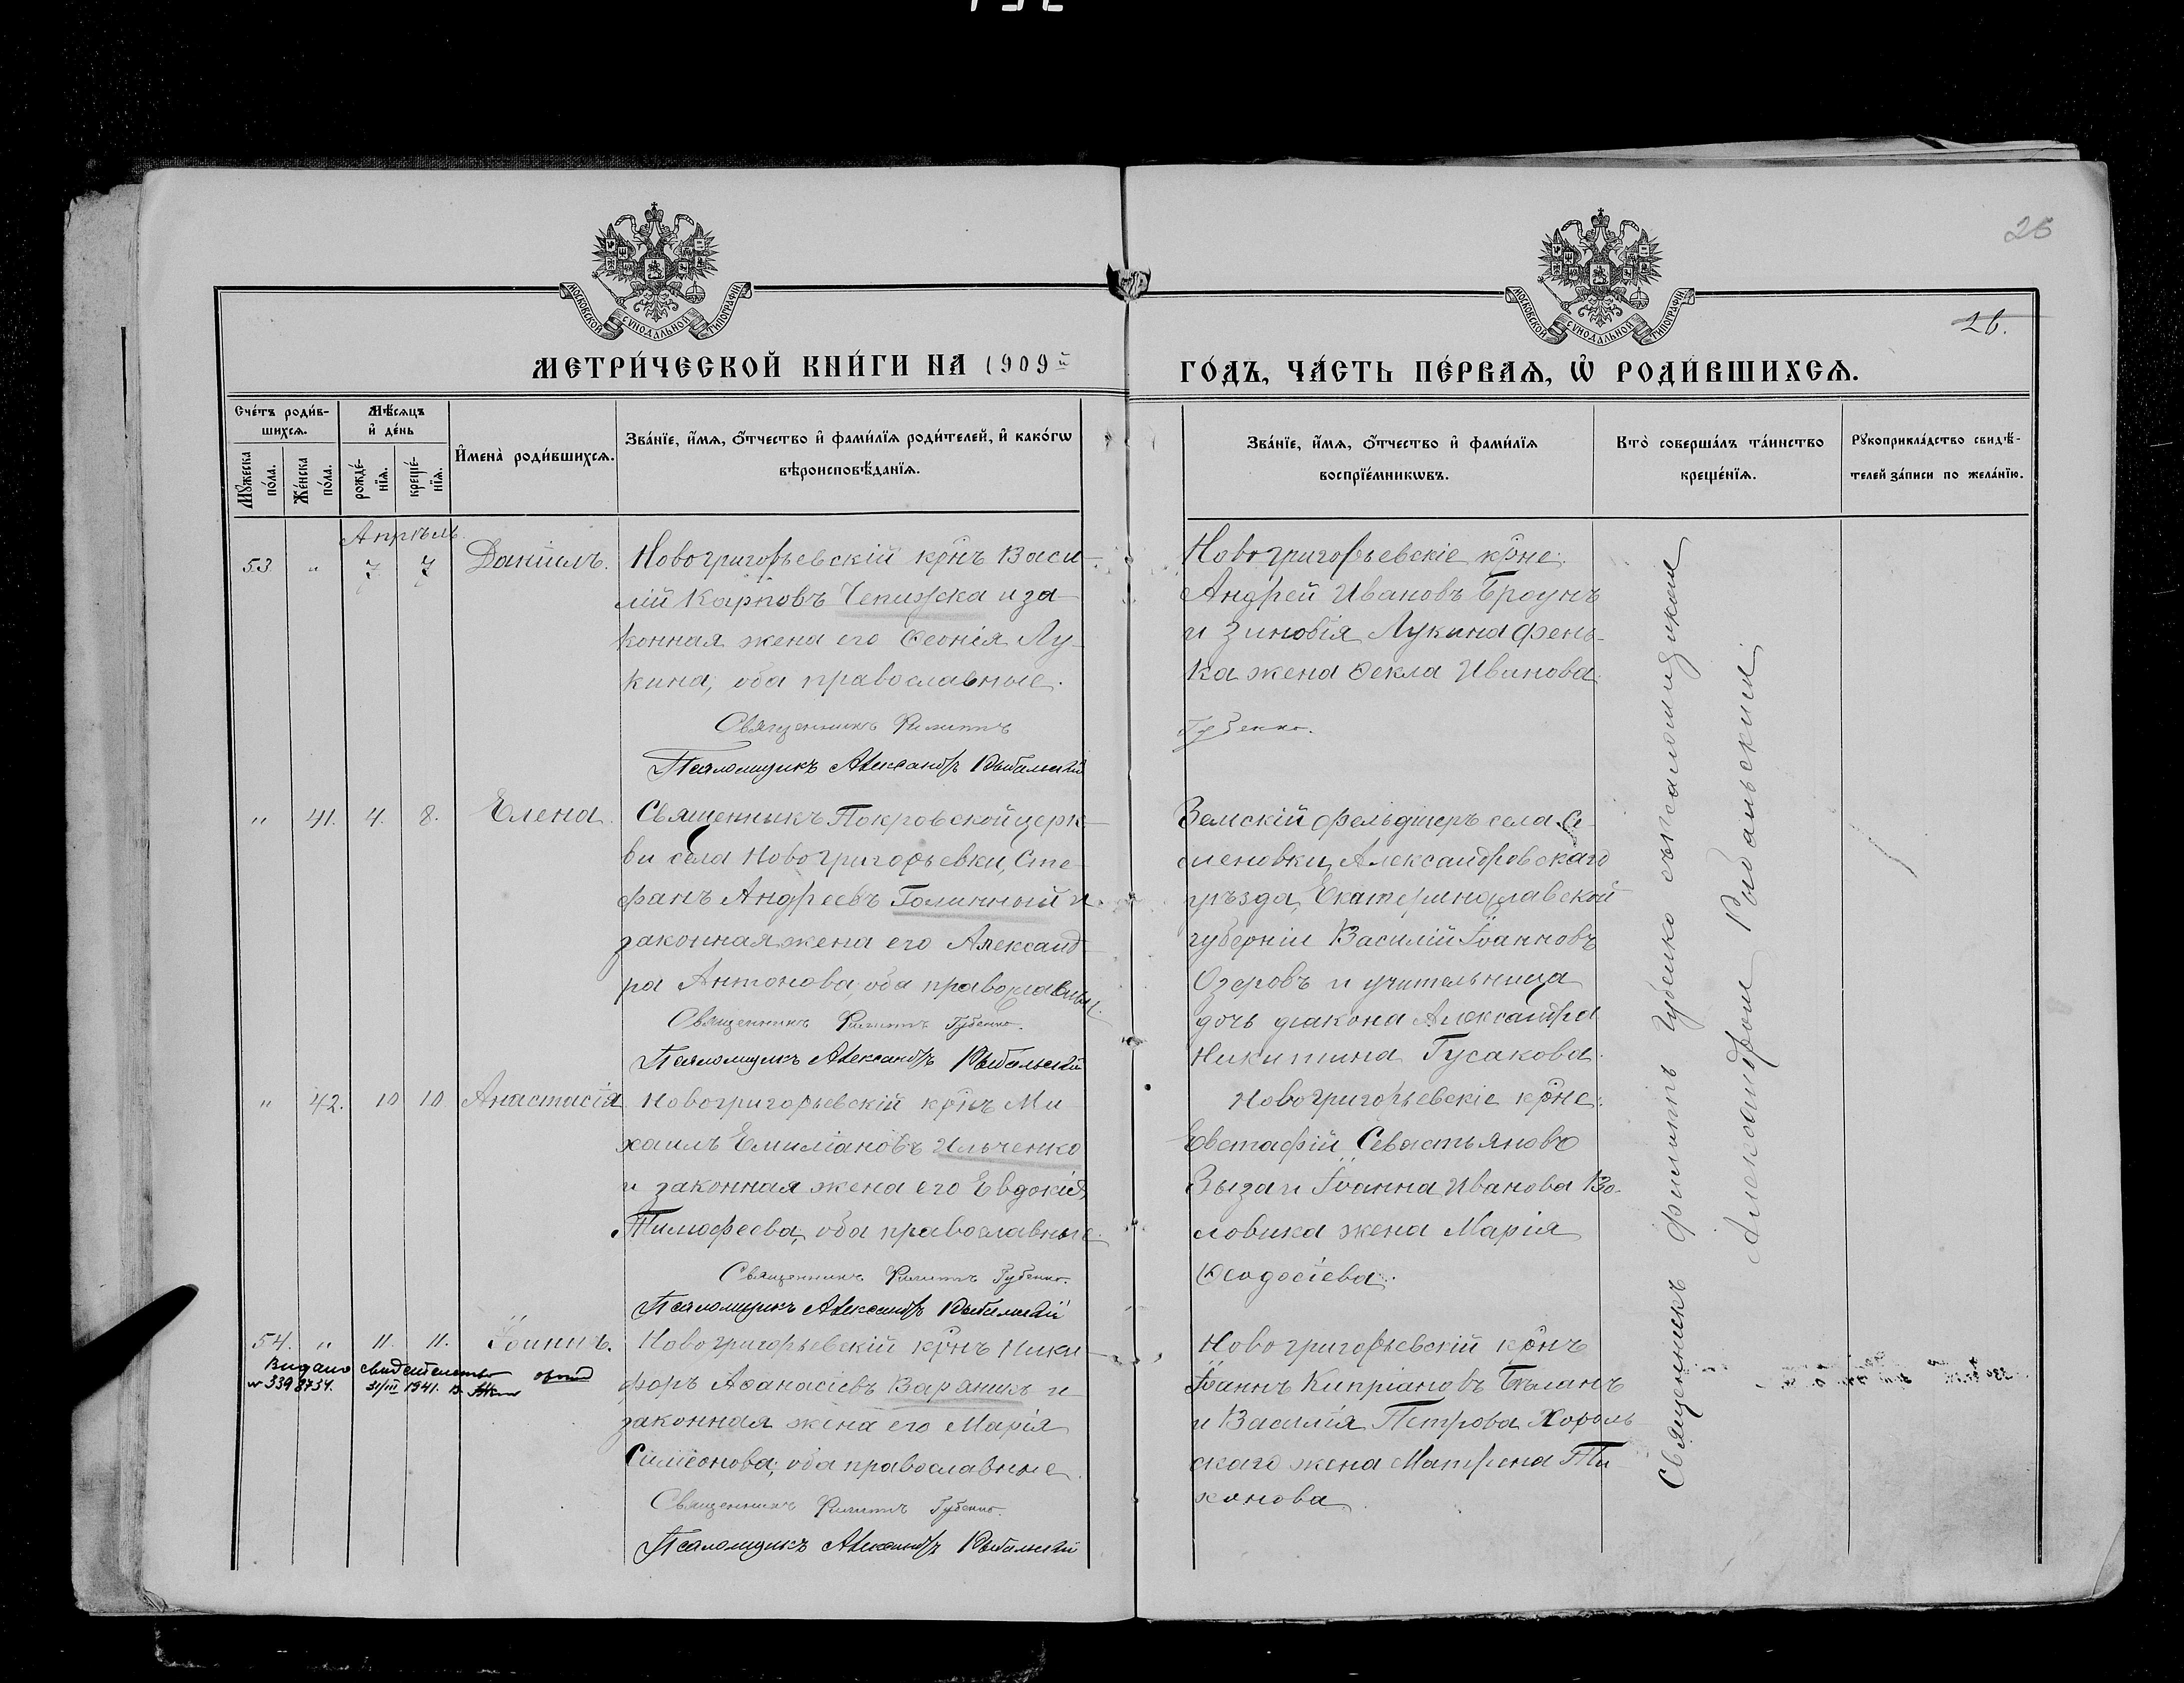 26
26.
МОСКОВСКОЙ СѴНОДАЛЬНОЙ ТИПОГРАФІИ
МОСКОВСКОЙ СѴНОДАЛЬНОЙ ТИПОГРАФІИ
МЕТРИ́ЧЕСКОЙ КНИ́ГИ НА 1909й
ГО́ДЪ, ЧА́СТЬ ПЕ́РВАѦ, Ѡ҆ РОДИ́ВШИХСѦ.
Сче́тъ роди́в-
шихсѧ.
Мѹ́жеска по́ла.
Же́нска по́ла.
Мѣ́сѧцъ
и҆ де́нь
рожде́-
нїѧ.
креще́-
нїѧ.
И҆мена̀ роди́вшихсѧ.
Зва́нїе, и҆́мѧ, ѻ҆́тчество и҆ фами́лїѧ роди́телей, и҆ како́гѡ
вѣроисповѣ́данїѧ.
Зва́нїе, и҆́мѧ, ѻ҆́тчество и҆ фами́лїѧ
воспрїе́мникѡвъ.
Кто̀ соверша́лъ та́инство
креще́нїѧ.
Рѹкоприкла́дство свидѣ́-
телей за́писи по жела́нїю.
Апрѣль
53 " 7 7 Даніилъ.
Новогригорьевскій крнъ Васи-
лій Карповъ Чепижка и за
конная жена его Ѳеонія Лу-
кина, оба православные.
Священникъ Филиппъ
Губенко.
Псаломщикъ Александръ Рыбальскій
Новогригорьевскіе крне:
Андрей Ивановъ Броунъ
и Зиновія Лукина Фень-
ка жена Ѳекла Иванова
" 41. 4. 8. Елена.
Священникъ Покровской церк-
ви села Новогригорьевки, Сте-
фанъ Андреевъ Голинный и
законная жена его Александ-
ра Антонова, оба православные.
Священникъ Филиппъ Губенко.
Псаломщикъ Александръ Рыбальскій
Земскій фельдшеръ села Се-
меновки, Александровскаго
уѣзда, Екатеринославской
губерніи Василій Іоанновъ
Озеровъ и учительница
дочь діакона Александра
Никитина Гусакова.
" 42. 10 10 Анастасія
Новогригорьевскій крнъ Ми
хаилъ Емиліановъ Ильченко
и законная жена его Евдокія
Тимофеева, оба православные.
Священникъ Филиппъ Губенко.
Псаломщикъ Александръ Рыбальскій
Новогригорьевскіе крне:
Евстафій Севастьяновъ
Выза и Іоанна Иванова Во-
ловика жена Марія
Ѳеодосіева.
54. " 11. 11. Іоаннъ.
Видано свидетельство
№ 3398734. 31/III 1941. в
Новогригорьевскій крнъ Ники-
форъ Аѳанасіевъ Варяникъ и
законная жена его Марія
Симеонова, оба православные.
Священникъ Филиппъ Губенко.
Псаломщикъ Александръ Рыбальскій
Новогригорьевскій крнъ
Іоаннъ Кипріановъ Бѣланъ
и Василія Петрова Хороль
скаго жена Матрена Ти
хонова
Священникъ Филиппъ Губенко съ псаломщикомъ
Александромъ Рыбальскимъ.